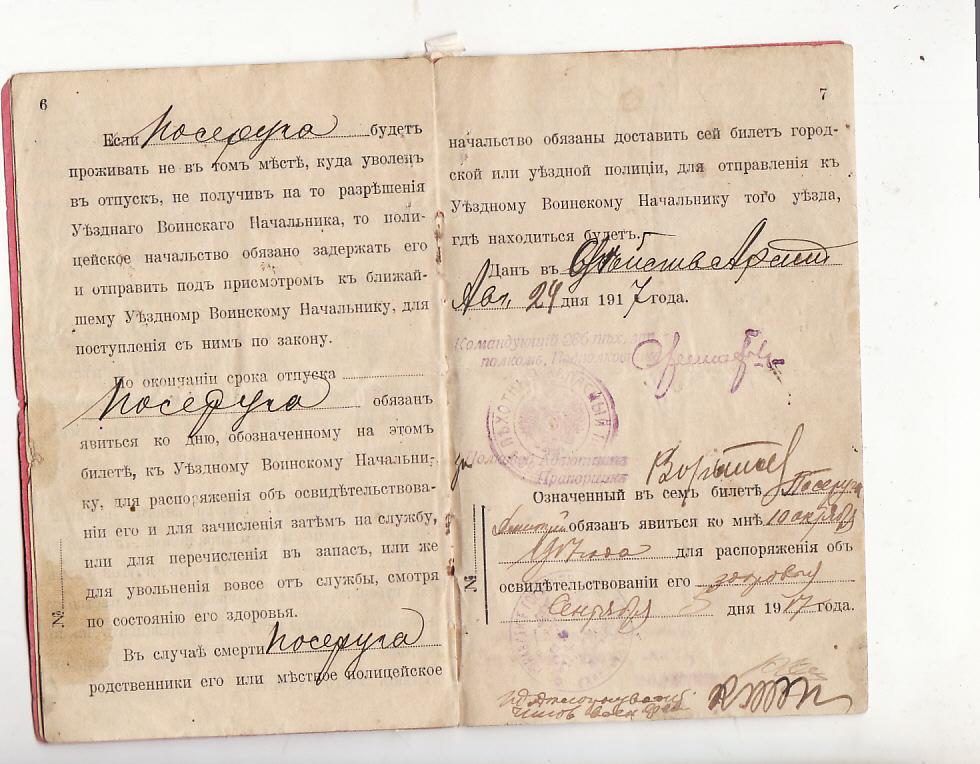 6
Если Посеруга будетъ
проживать не въ томъ мѣстѣ, куда уволенъ
въ отпускъ, не получивъ на то разрѣшенія
Уѣзднаго Воинскаго Начальника, то поли-
цейское начальство обязано задержать его
и отправить подъ присмотромъ къ ближай-
шему Уѣздномр Воинскому Начальнику, для
поступленія съ нимъ по закону.
По окончаніи срока отпуска
Посеруга обязанъ
явиться ко дню, обозначенному на этомъ
билетѣ, къ Уѣздному Воинскому Начальни-
ку, для распоряженія объ освидѣтельствова-
ніи его и для зачисленія затѣмъ на службу,
или для перечисленія въ запасъ, или же
для увольненія вовсе отъ службы, смотря
по состоянію его здоровья.
Въ случаѣ смерти Посеруга
родственники его или мѣстное полицейское
№
7
начальство обязаны доставить сей билетъ город-
ской или уѣздной полиціи, для отправленія къ
Уѣздному Воинскому Начальнику того уѣзда,
гдѣ находиться будетъ.
Данъ въ Дѣйств. Арміи
Авг. 24 дня 1917 года.
Командующій 286 пѣх.
полкомъ, Подполков
ПѢХОТНЫЙ
Полковой Адъютантъ
Прапорщикъ
Означенный въ семъ билетѣ Посеруга
обязанъ явиться ко мнѣ 10 октября
1917 года для распоряженія объ
освидѣтельствованіи его здоровья
Сентября 5 дня 1917 года.
№